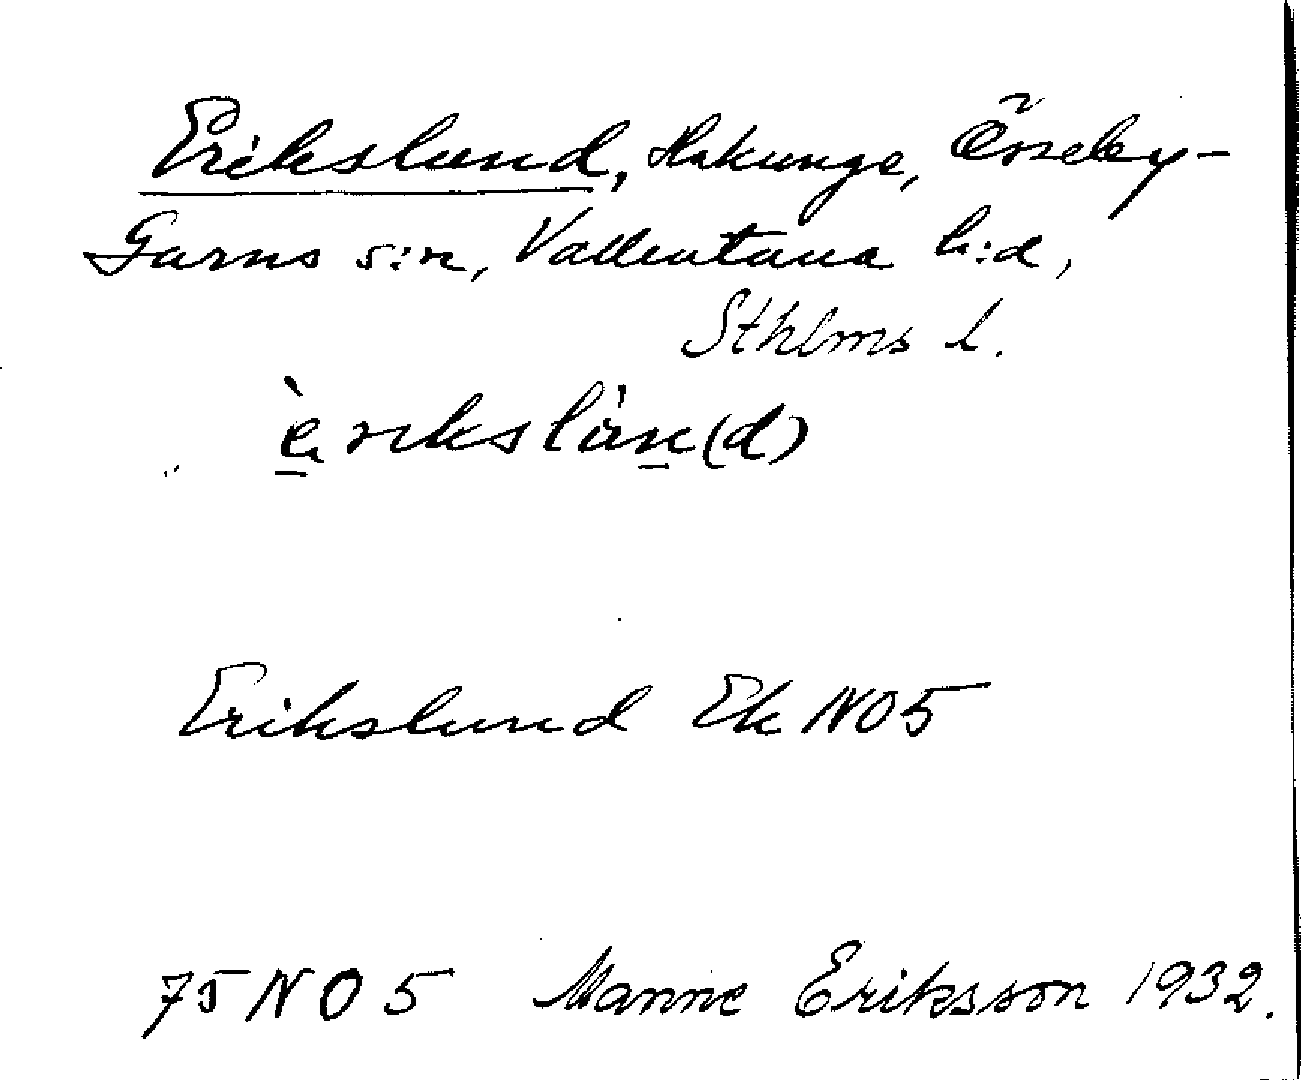 Erikslund, Hakunge, Össeby-
Garns s:n, Vallentuna h:d,
Sthlms l.
èrikslùn(d)
Erikslund Ek NO5
75 NO 5 Manne Eriksson 1932.